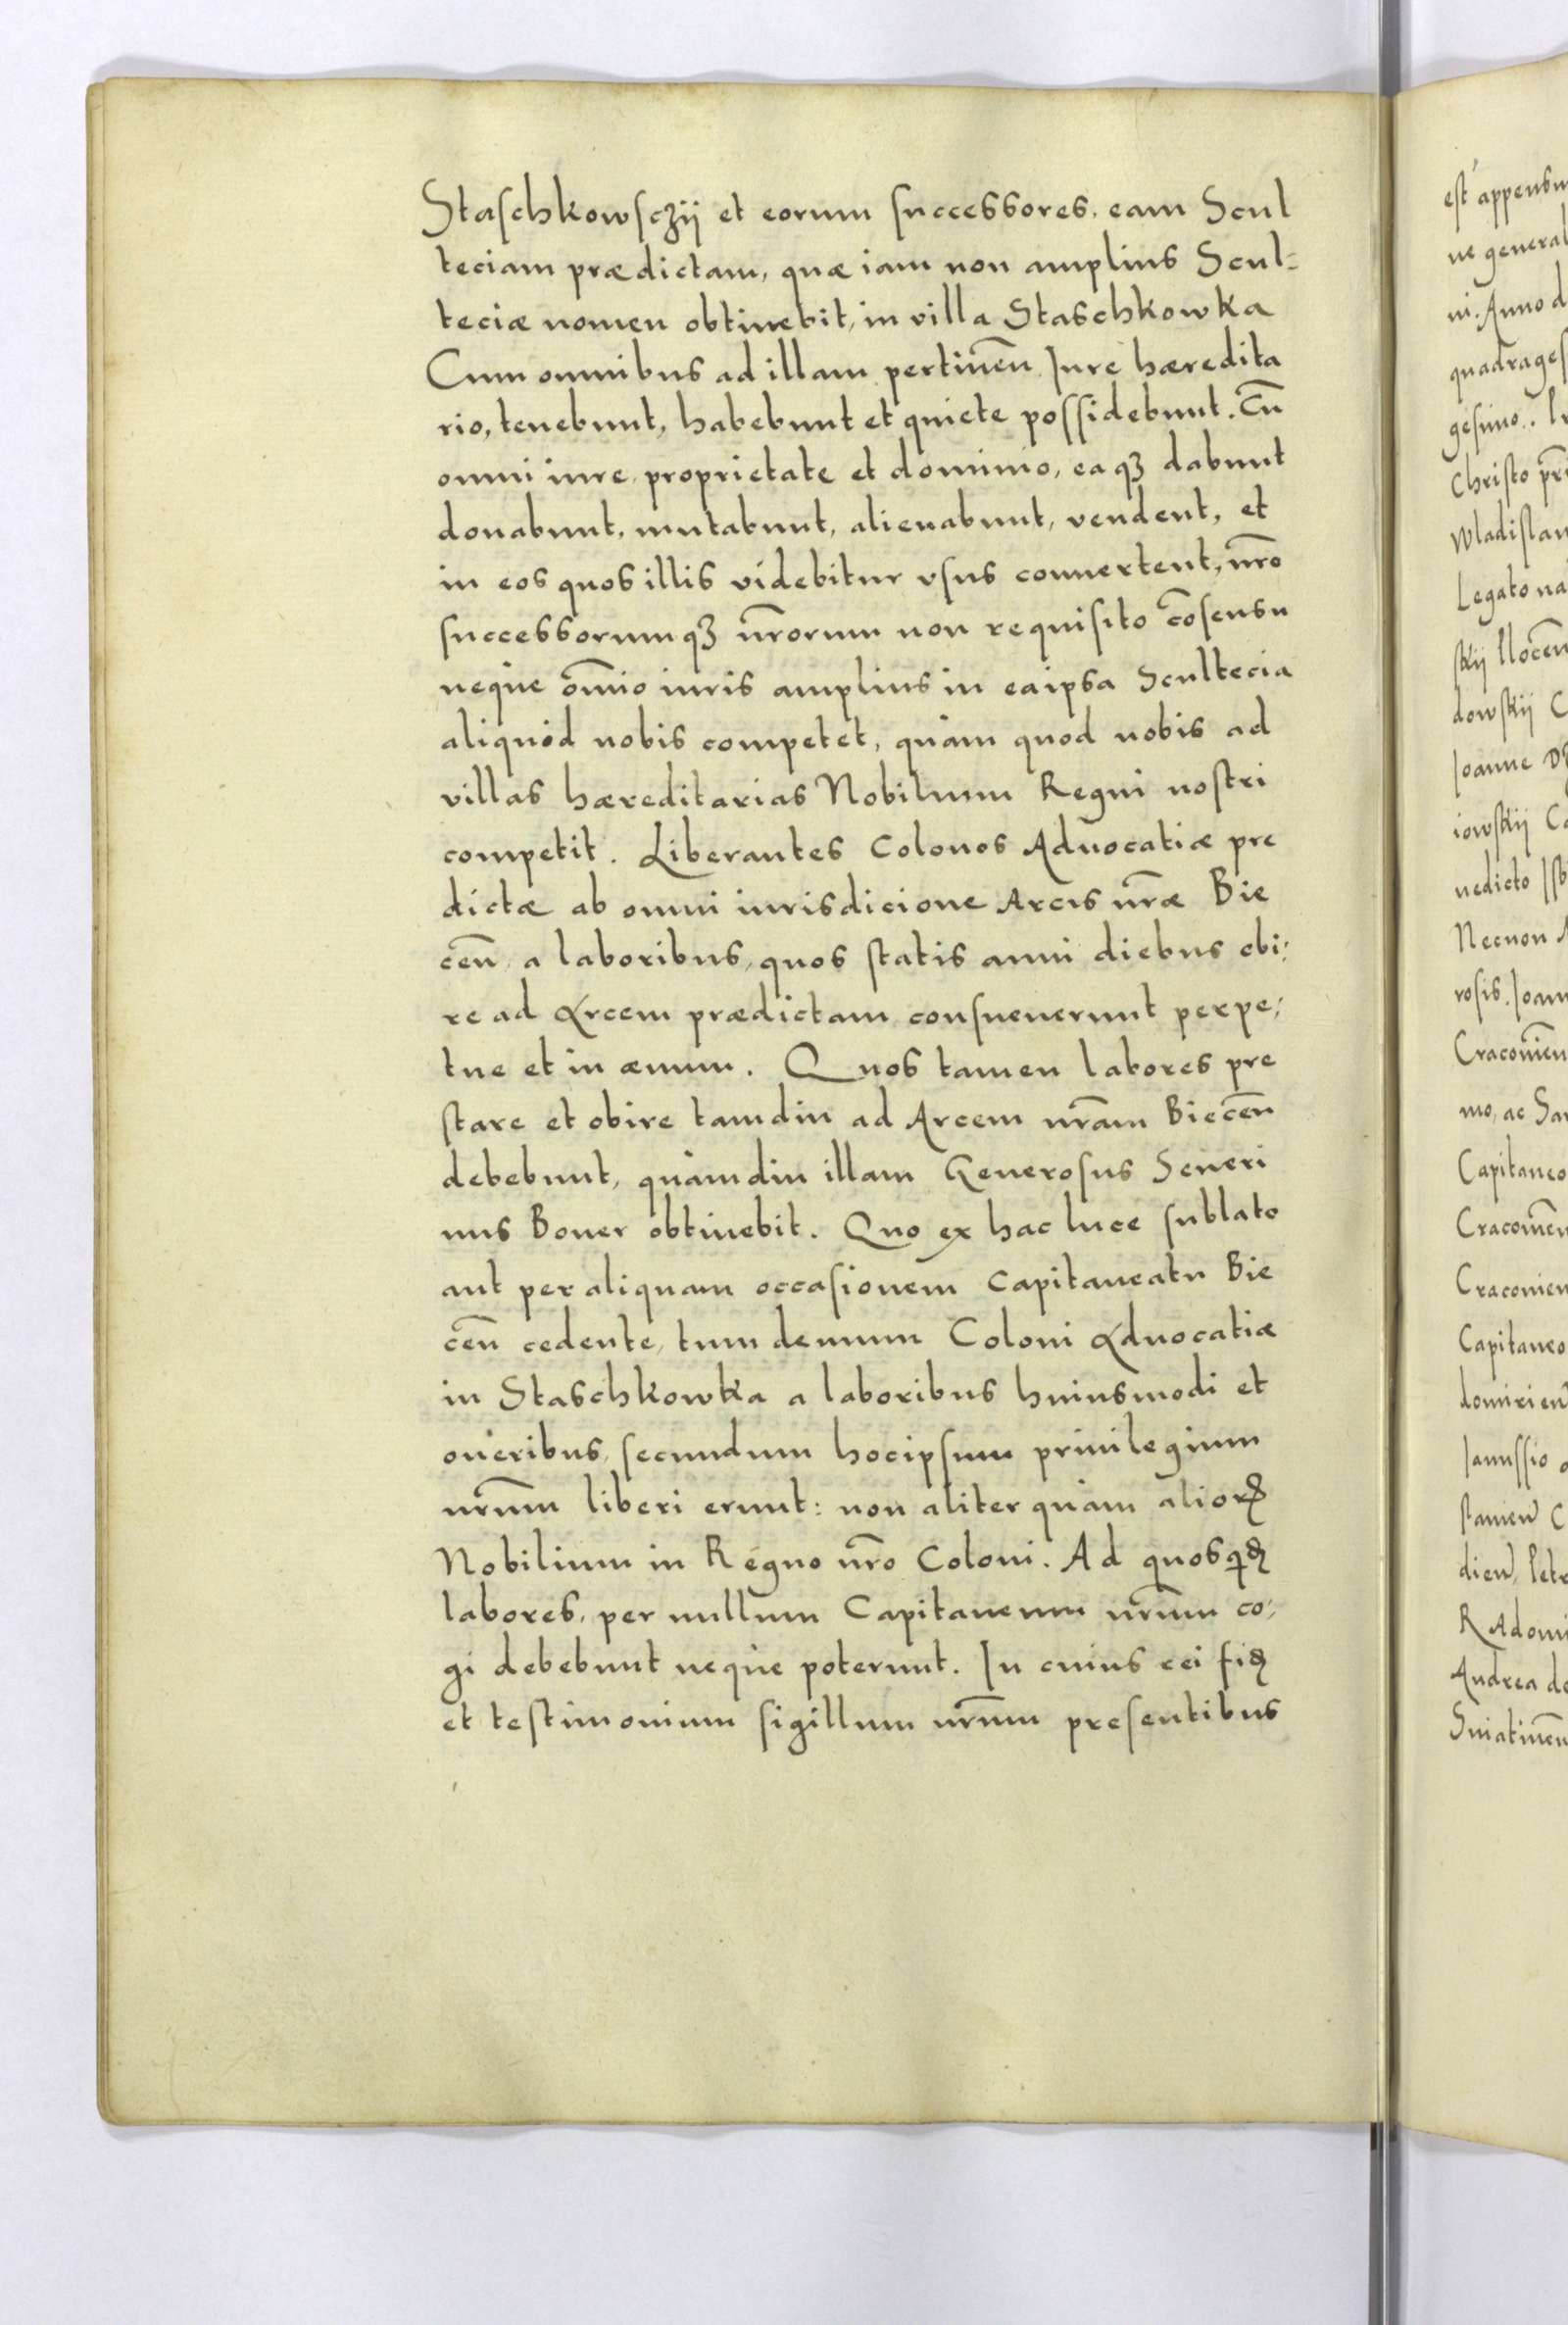 Staſchkowſczÿ et eorum ſucceſſores, eam Scul
teciam prædictam, quæ iam non amplius Scul=
teciæ nomen obtinebit, in villa Staschkowka
Cum omnibus ad illam pertineñ Iure hæredita
rio, tenebunt, habebunt et quiete poſſidebunt. Cū
omni iure, proprietate et dominio, ea qꝫ dabunt
donabunt, mutabunt, alienabunt, vendent, et
in eos quos illis videbitur vſus conuertent, nr̄o
ſucceſſorumqꝫ nr̄orum non requiſito cōſensu
neque om̄io iuris amplius in eaipsa Scultecia
aliquod nobis competet, quàm quod nobis ad
villas hæreditarias Nobilium Regni noſtri
competit. Liberantes Colonos Aduocatiæ pre
dictæ ab omni iurisdicione Arcis nr̄æ Bie
ceñ, a laboribus, quos ſtatis anni diebus obi:
re ad Arcem prædictam conſueuerunt perpe:
tue et in æuum. Quos tamen labores pre
ſtare et obire tamdiu ad Arcem nr̄am Bieceñ
debebunt, quàmdiu illam Generoſus Seueri
nus Boner obtinebit. Quo ex hac luce ſublato
aut per aliquam occaſionem Capitaneatu Bie
ceñ cedente, tum demum Coloni Aduocatiæ
in Staschkowka a laboribus huiusmodi et
oneribus, ſecundum hocipſum priuilegium
nr̄um liberi erunt: non aliter quàm alioꝝ
Nobilium in Regno nr̄o Coloni. Ad quosqꝫ
labores, per nullum Capitaneum nr̄um co:
gi debebunt neque poterunt. In cuius rei fiꝫ
et teſtimonium ſigillum nr̄um preſentibus
eſt appensu
ne general
ni. Anno d
quadrageſ
geſimo. 
Chriſto pr̄
Wladiſlau
Legato na
ſkÿ lloceñ
dowſkÿ C
Joanne
iowſkÿ Ca
nedicto
Necnon
roſis. Joan
Cracouieñ
mo, ac San
Capitaneo
Cracouieñ
Cracouien
Capitaneo
domirieñ
Januſſio
ſtanieñ C
dieñ, Petr
Radomi
Andrea de
Sniatineñ